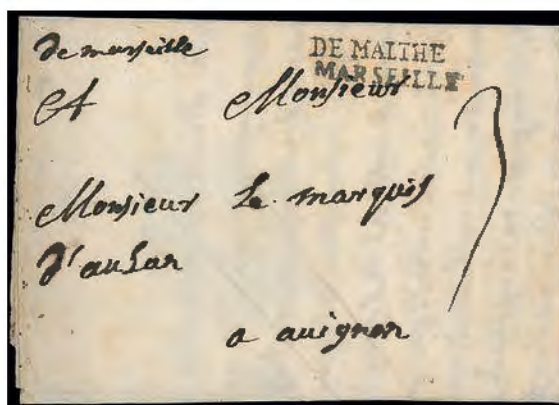 de marseille
DE MALTHE
MARSEILLE
A Monsieur
Monsieur Le marquis
d'aulan
a avignon